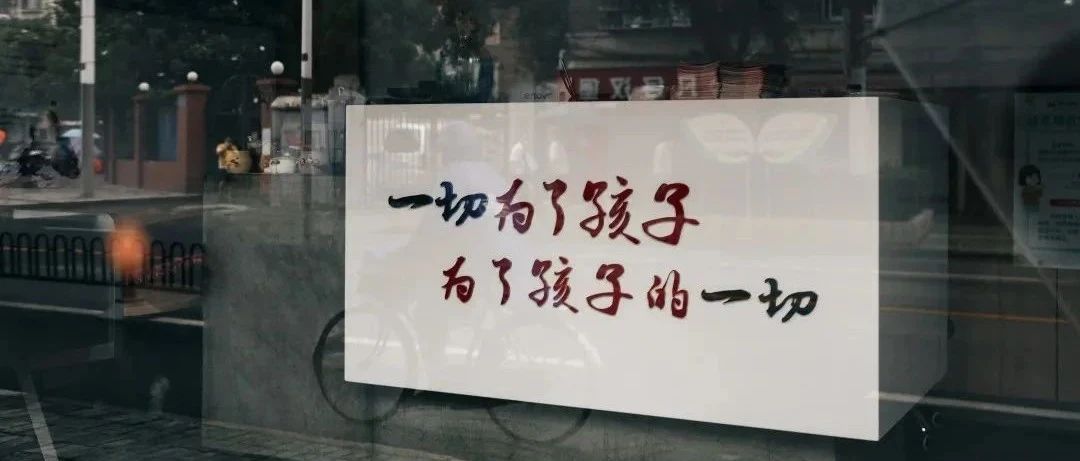 一切为了孩子
为了孩子的一切